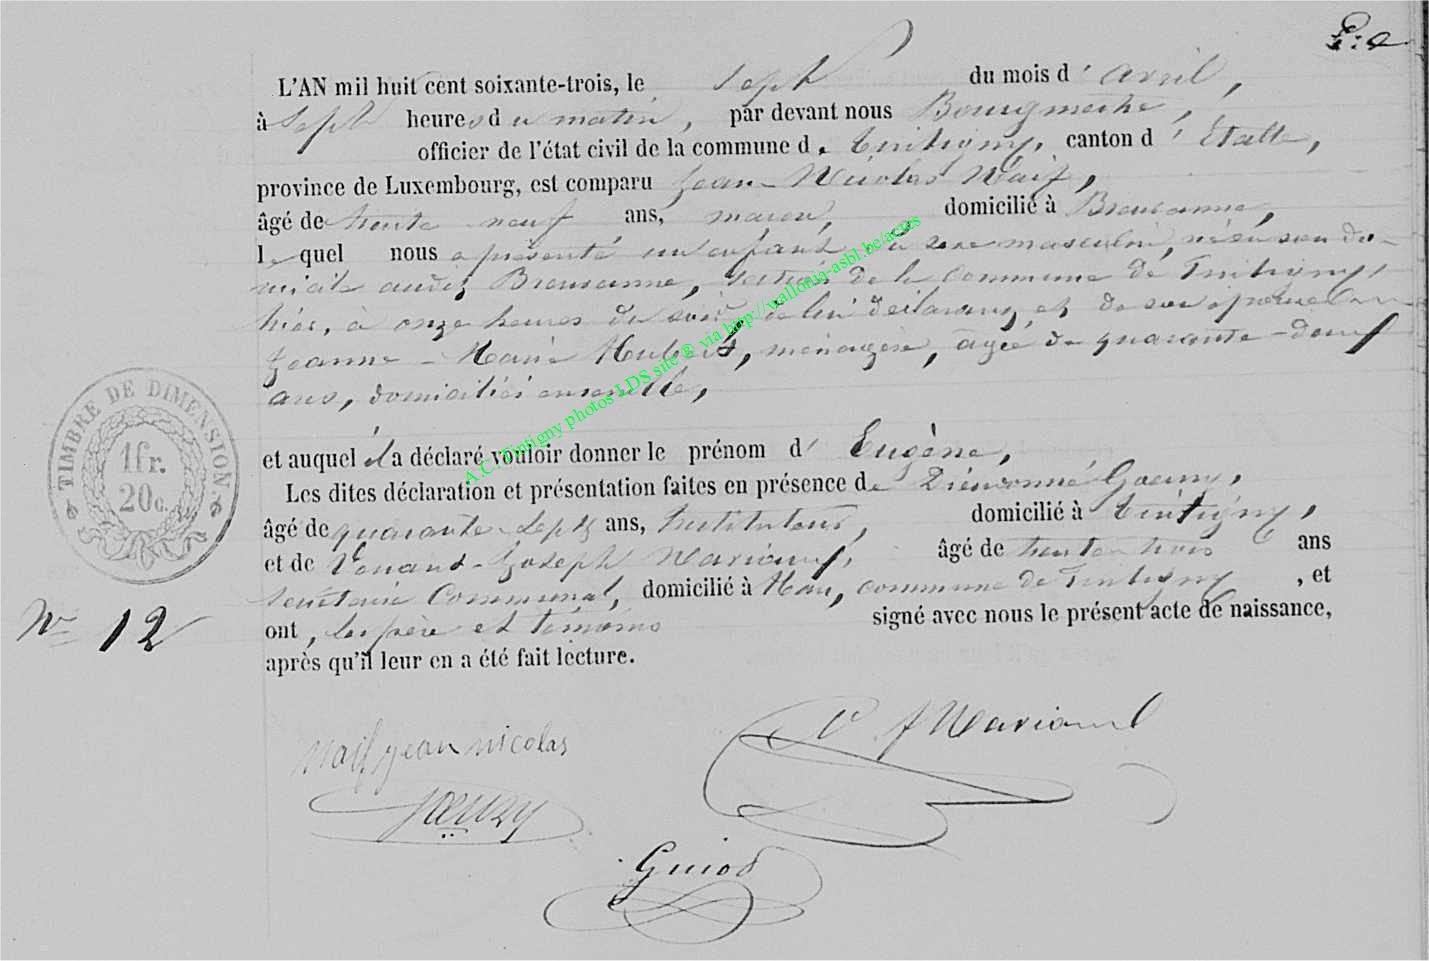 L'AN mil huit cent soixante-trois, le sept du mois d' avril,
à Sept heures du matin, par devant nous Bourgmestre,
officier de l'état civil de la commune de Tintigny, canton d' Etalle,
province de Luxembourg, est comparu Jean-Nicolas Naif,
âgé de trente neuf ans, maçon, domicilié à Breuvanne,
lequel nous a présenté un enfant du sexe masculin, né en son do-
micile audit Breuvanne, section de la commune de Tintigny,
hier, à onze heures du soir de lui déclarant et de son épouse
Jeanne-Marie Hubert, ménagère, âgée de quarante-deux
ans, domiciliés ensemble,
et auquel il a déclaré vouloir donner le prénom d' Eugène,
Les dites déclaration et présentation faites en présence de Dieudonné Goeury,
âgé de quarante-sept ans, Instituteur, domicilié à Tintigny,
et de Joseph âgé de trente trois ans
secrétaire Communal, domicilié à Han, commune de Tintigny, et
ont, les père et témoins signé avec nous le présent acte de naissance,
après qu'il leur en a été fait lecture.
TIMBRE DE DIMENSION
1 fr.
20 c.
N° 12
naif jean nicolas
Goeury
Guiod
A.C. Tintigny photos LDS site @ via http://wallonia-asbl.be/actes